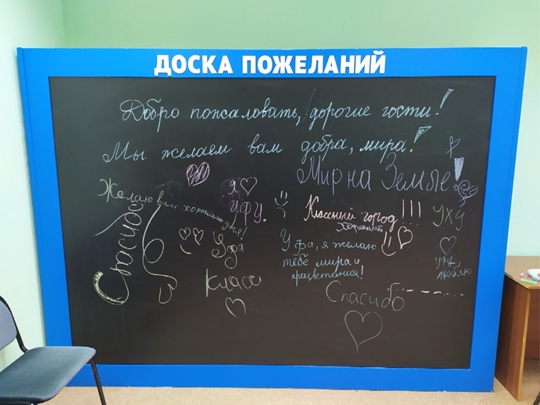 ДОСКА ПОЖЕЛАНИЙ
Добро пожаловать, дорогие гости!
Мы желаем вам добра, мира!
Мир на Земле!
Желаю вам хорошего дня!
Я
УФУ.
Классный город!!!
хороший
УХУ
Спасибо
Уфа
Уфа, я желаю
тебе мира и
процветания!
люблю
Класс
Спасибо